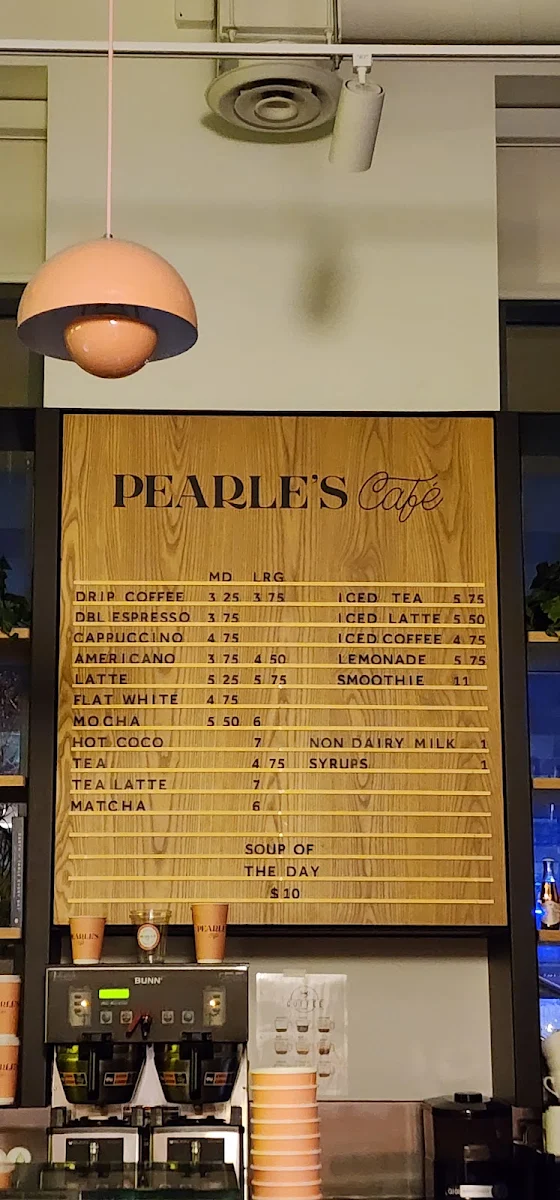 PEARLE'S Café
MD LRG
DRIP COFFEE 3 25 3 75 ICED TEA 5 75
DBL ESPRESSO 3 75 ICED LATTE 5 50
CAPPUCCINO 4 75 ICED COFFEE 4 75
AMERICANO 3 75 4 50 LEMONADE 5 75
LATTE 5 25 5 75 SMOOTHIE 11
FLAT WHITE 4 75
MOCHA 5 50 6
HOT COCO 7 NON DAIRY MILK 1
TEA 4 75 SYRUPS 1
TEA LATTE 7
MATCHA 6
SOUP OF
THE DAY
$10
BUNN